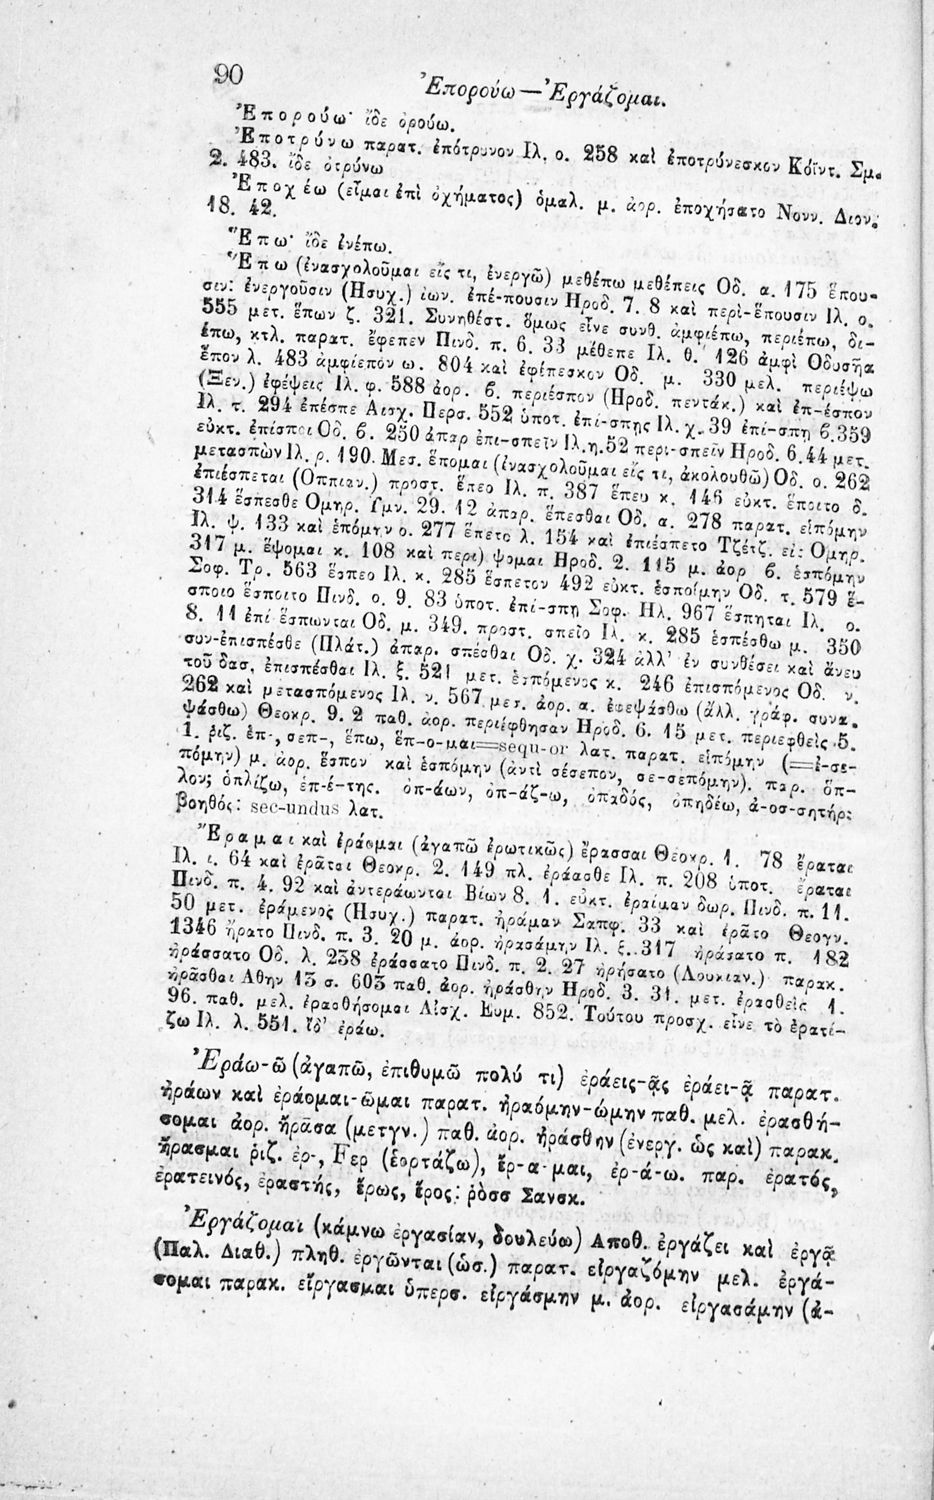 90
Ἐπορούω—Ἐργάζομαι.
Ἐπορούω· ἴδε ὀρούω.
Ἐποτρύνω παρατ. ἐπότρυνον Ιλ. ο. 258 καὶ ἐποτρύνεσκον Κόϊντ. Σμ.
2. 483. ἴδε ὀτρύνω
Ἐποχέω (εἶμαι ἐπὶ ὀχήματος) ὁμαλ. μ. ἀορ. ἐποχήσατο Νονν. Διον.
18. 42.
Ἔπω· ἴδε ἐνέπω.
Ἕπω (ἐνασχολοῦμαι εἴς τι, ἐνεργῶ) μεθέπω μεθέπεις Οδ. α. 175 ἕπου-
σιν: ἐνεργοῦσιν (Ησυχ.) ἰων. ἐπέ-πουσιν Ηροδ. 7. 8 καὶ περὶ-ἕπουσιν Ιλ. ο.
555 μετ. ἕπων ζ. 321. Συνηθέστ. ὅμως εἶνε συνθ. ἀμφιέπω, περιέπω, δι-
έπω, κτλ. παρατ. ἔφεπεν Πινδ. π. 6. 33 μέθεπε Ιλ. θ. 126 ἀμφὶ Οδυσῆα
ἕπον λ. 483 ἀμφίεπον ω. 804 καὶ ἐφίπεσκον Οδ. μ. 330 μελ. περιέψω
(Ξεν.) ἐφέψεις Ιλ. φ. 588 ἀορ. β. περιέσπον (Ηροδ. πεντάκ.) καὶ ἐπ-έσπον
Ιλ. τ. 294 ἐπέσπε Αισχ. Περσ. 552 ὑποτ. ἐπί-σπῃς Ιλ. χ. 39 ἐπί-σπῃ β. 359
εὐκτ. ἐπίσποι Οδ. β. 250 ἀπαρ ἐπι-σπεῖν Ιλ. η. 52 περι-σπεῖν Ηροδ. 6. 44 μετ.
μετασπὼν Ιλ. ρ. 190. Μεσ. ἕπομαι (ἐνασχολοῦμαι εἴς τι, ἀκολουθῶ) Οδ. ο. 262
ἐπιέσπεται (Οππιαν.) προστ. ἕπεο Ιλ. π. 387 ἕπευ κ. 146 εὐκτ. ἕποιτο δ.
314 ἕσπεσθε Ομηρ. Ὑμν. 29. 12 ἀπαρ. ἕπεσθαι Οδ. α. 278 παρατ. εἱπόμην
Ιλ. ψ. 133 καὶ ἑπόμην ο. 277 ἕπετο λ. 154 καὶ ἐπιέσπετο Τζέτζ. εἰς Ομηρ.
317 μ. ἕψομαι κ. 108 καὶ περι) ψομαι Ηροδ. 2. 115 μ. ἀορ β. ἑσπόμην
Σοφ. Τρ. 563 ἕσπεο Ιλ. κ. 285 ἕσπετον 492 εὐκτ. ἑσποίμην Οδ. τ. 579 ἕ-
σποιο ἕσποιτο Πινδ. ο. 9. 83 ὑποτ. ἐπί-σπῃ Σοφ. Ηλ. 967 ἕσπηται Ιλ. ο.
8. 11 ἐπί ἕσπωνται Οδ. μ. 349. προστ. σπεῖο Ιλ. κ. 285 ἑσπέσθω μ. 350
συν-ἐπισπέσθε (Πλάτ.) ἀπαρ. σπέσθαι Οδ. χ. 324 ἀλλ' ἐν συνθέσει καὶ ἄνευ
τοῦ δασ. ἐπισπέσθαι Ιλ. ξ. 521 μετ. ἑσπόμενος κ. 246 ἐπισπόμενος Οδ. ν.
262 καὶ μετασπόμενος Ιλ. ν. 567 μεσ. ἀορ. α. ἐφεψάσθω (ἄλλ. γράφ. συνα.
ψάσθω) Θεοκρ. 9. 2 παθ. ἀορ. περιέφθησαν Ηροδ. 6. 15 μετ. περιεφθεὶς 5.
1. ῥιζ. ἑπ-, σεπ-, ἕπω, ἕπ-ο-μαι=sequ-or λατ. παρατ. εἱπόμην (=ἐ-σε-
πόμην) μ. ἀορ. ἕσπον καὶ ἑσπόμην (ἀντὶ σέσεπον, σε-σεπόμην). παρ. ὅπ-
λον; ὁπλίζω, ἑπ-έ-της. ὀπ-άων, ὀπ-άζ-ω, ὀπαδός, ὀπηδέω, ἀ-οσ-σητήρ:
βοηθός: sec-undus λατ.
Ἔραμαι καὶ ἐράομαι (ἀγαπῶ ἐρωτικῶς) ἔρασσαι Θεοκρ. 1. 78 ἔραται
Ιλ. ι. 64 καὶ ἐρᾶται Θεοκρ. 2. 149 πλ. ἐράασθε Ιλ. π. 208 ὑποτ. ἔραται
Πινδ. π. 4. 92 καὶ ἀντεράωνται Βίων 8. 1. εὐκτ. ἐραίμαν δωρ. Πινδ. π. 11.
50 μετ. ἐράμενος (Ησυχ.) παρατ. ἠράμαν Σαπφ. 33 καὶ ἐρᾶτο Θεογν.
1346 ἤρατο Πινδ. π. 3. 20 μ. ἀορ. ἠρασάμην Ιλ. ξ. 317 ἠράσατο π. 182
ἠράσσατο Οδ. λ. 238 ἐράσσατο Πινδ. π. 2. 27 ἠρήσατο (Λουκιαν.) παρακ.
ἠρᾶσθαι Αθην 13 σ. 603 παθ. ἀορ. ἠράσθην Ηροδ. 3. 31. μετ. ἐρασθεὶς 1.
96. παθ. μελ. ἐρασθήσομαι Αἰσχ. Ευμ. 852. Τούτου προσχ. εἶνε τὸ ἐρατί-
ζω Ιλ. λ. 551. ἴδ' ἐράω.
Ἐράω-ῶ (ἀγαπῶ, ἐπιθυμῶ πολύ τι) ἐράεις-ᾷς ἐράει-ᾷ παρατ.
ἤραων καὶ ἐράομαι-ῶμαι παρατ. ἠραόμην-ώμην παθ. μελ. ἐρασθή-
σομαι ἀορ. ἤρᾶσα (μετγν.) παθ. ἀορ. ἠράσθην (ἐνεργ. ὡς καὶ) παρακ.
ἤρασμαι ῥιζ. ἐρ-, Fερ (ἑορτάζω), ἔρ-α-μαι, ἐρ-ά-ω. παρ. ἐρατός,
ἐρατεινός, ἐραστής, ἔρως, ἔρος: ῥὸσσ Σανσκ.
Ἐργάζομαι (κάμνω ἐργασίαν, δουλεύω) Αποθ. ἐργάζει καὶ ἐργᾷ
(Παλ. Διαθ.) πληθ. ἐργῶνται (ὡσ.) παρατ. εἰργαζόμην μελ. ἐργά-
σομαι παρακ. εἴργασμαι ὑπερσ. εἰργάσμην μ. ἀορ. εἰργασάμην (ἀ-